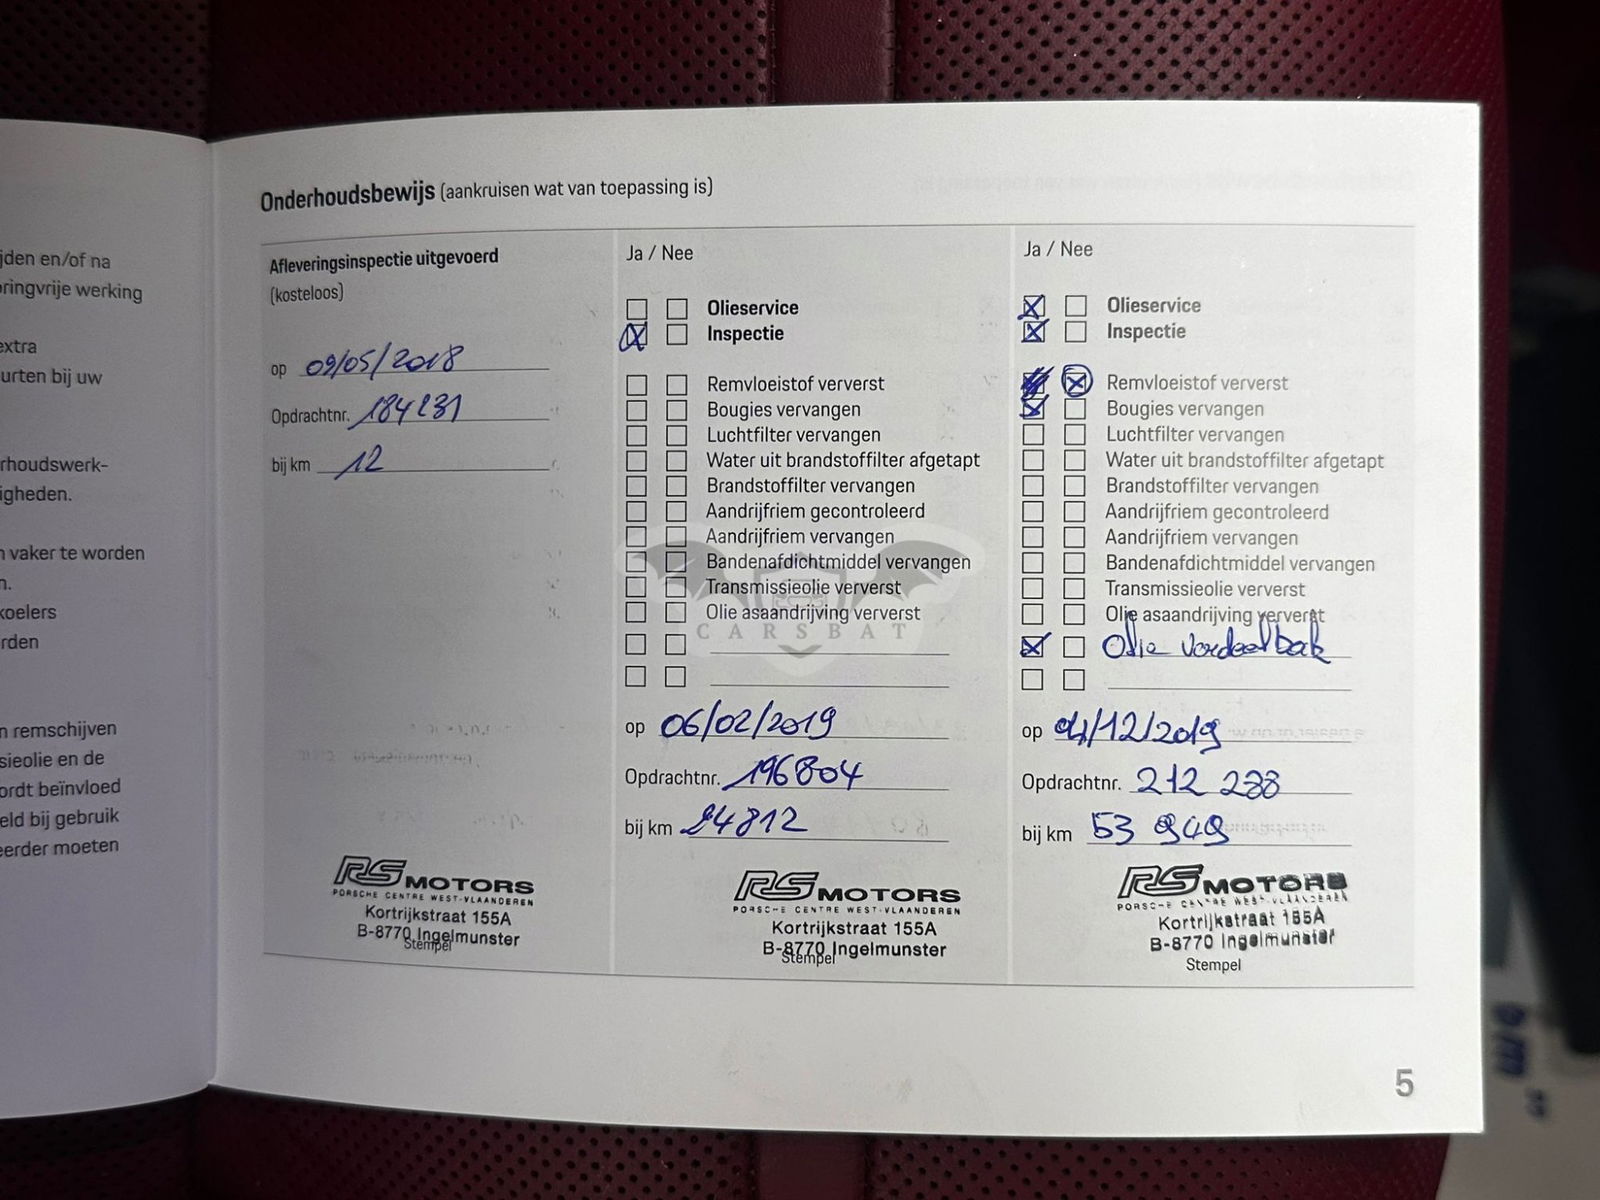 jden en/of na
oringvrije werking
extra
urten bij uw
rhoudswerk-
igheden.
n vaker te worden
n.
koelers
rden
n remschijven
sieolie en de
ordt beïnvloed
eld bij gebruik
eerder moeten
Onderhoudsbewijs (aankruisen wat van toepassing is)
Afleveringsinspectie uitgevoerd
(kosteloos)
op 09/05/2018
Opdrachtnr. 184231
bij km 12
RS MOTORS
PORSCHE CENTRE WEST-VLAANDEREN
Kortrijkstraat 155A
B-8770 Ingelmunster
Stempel
Ja / Nee
Olieservice
X Inspectie
Remvloeistof ververst
Bougies vervangen
Luchtfilter vervangen
Water uit brandstoffilter afgetapt
Brandstoffilter vervangen
Aandrijfriem gecontroleerd
Aandrijfriem vervangen
Bandenafdichtmiddel vervangen
Transmissieolie ververst
Olie asaandrijving ververst
CARSBAT
op 06/02/2019
Opdrachtnr. 196804
bij km 24812
RS MOTORS
PORSCHE CENTRE WEST-VLAANDEREN
Kortrijkstraat 155A
B-8770 Ingelmunster
Stempel
Ja / Nee
X Olieservice
X Inspectie
X Remvloeistof ververst
X Bougies vervangen
Luchtfilter vervangen
Water uit brandstoffilter afgetapt
Brandstoffilter vervangen
Aandrijfriem gecontroleerd
Aandrijfriem vervangen
Bandenafdichtmiddel vervangen
Transmissieolie ververst
Olie asaandrijving ververst
X Olie verdeelbak
op 04/12/2019
Opdrachtnr. 212 288
bij km 53 949
RS MOTORS
PORSCHE CENTRE WEST-VLAANDEREN
Kortrijkstraat 155A
B-8770 Ingelmunster
Stempel
5